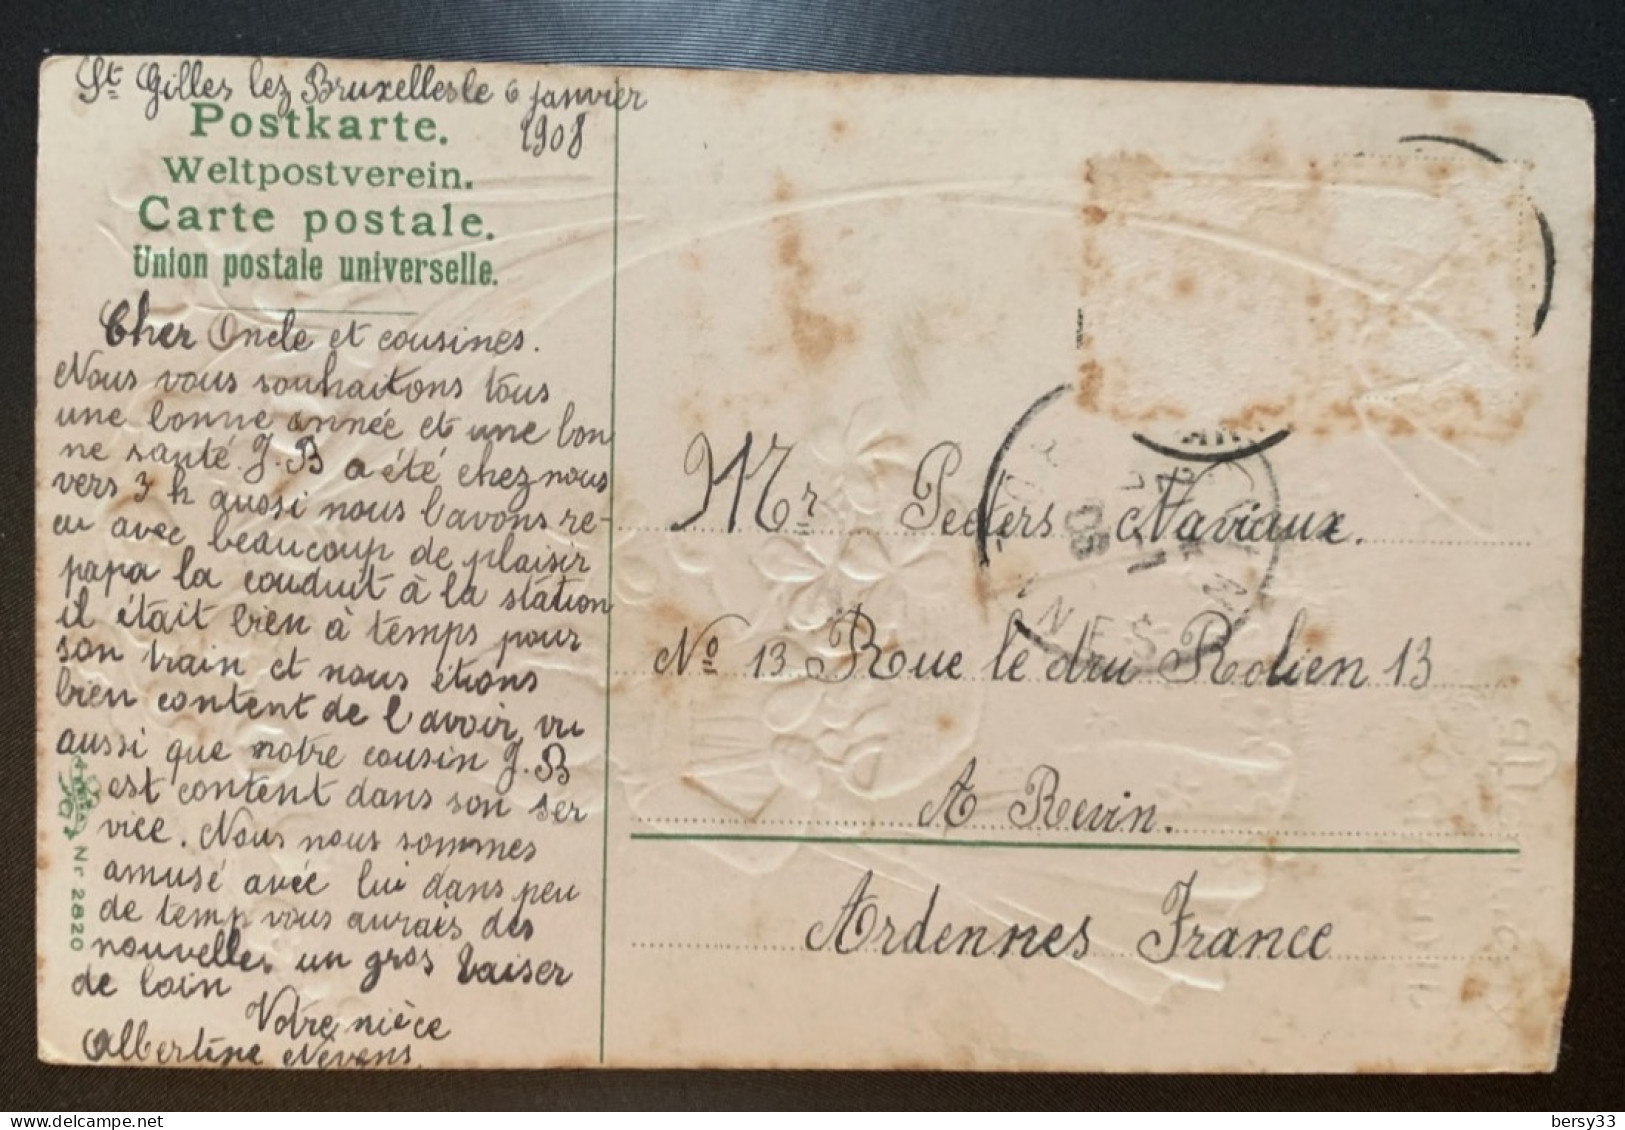 St Gilles lez Bruxelles le 6 janvier
1908
Postkarte.
Weltpostverein.
Carte postale.
Union postale universelle.
Cher Oncle et cousines.
Nous vous souhaitons tous
une bonne année et une bon
ne santé. J. B a été chez nous
vers 3 h aussi nous l'avons re-
çu avec beaucoup de plaisir
papa la conduit à la station
il était bien à temps pour
son train et nous étions
bien content de l'avoir vu
aussi que notre cousin J. B
est content dans son ser
vice. Nous nous sommes
amusé avec lui dans peu
de temp vous aurais des
nouvelles un gros baiser
de loin
Votre nièce
Albertine Nevens.
Nr. 2820
Mr Peeters Naviaux.
No 13 Rue le dru Rolien 13
A Revin.
Ardennes France
bersy33